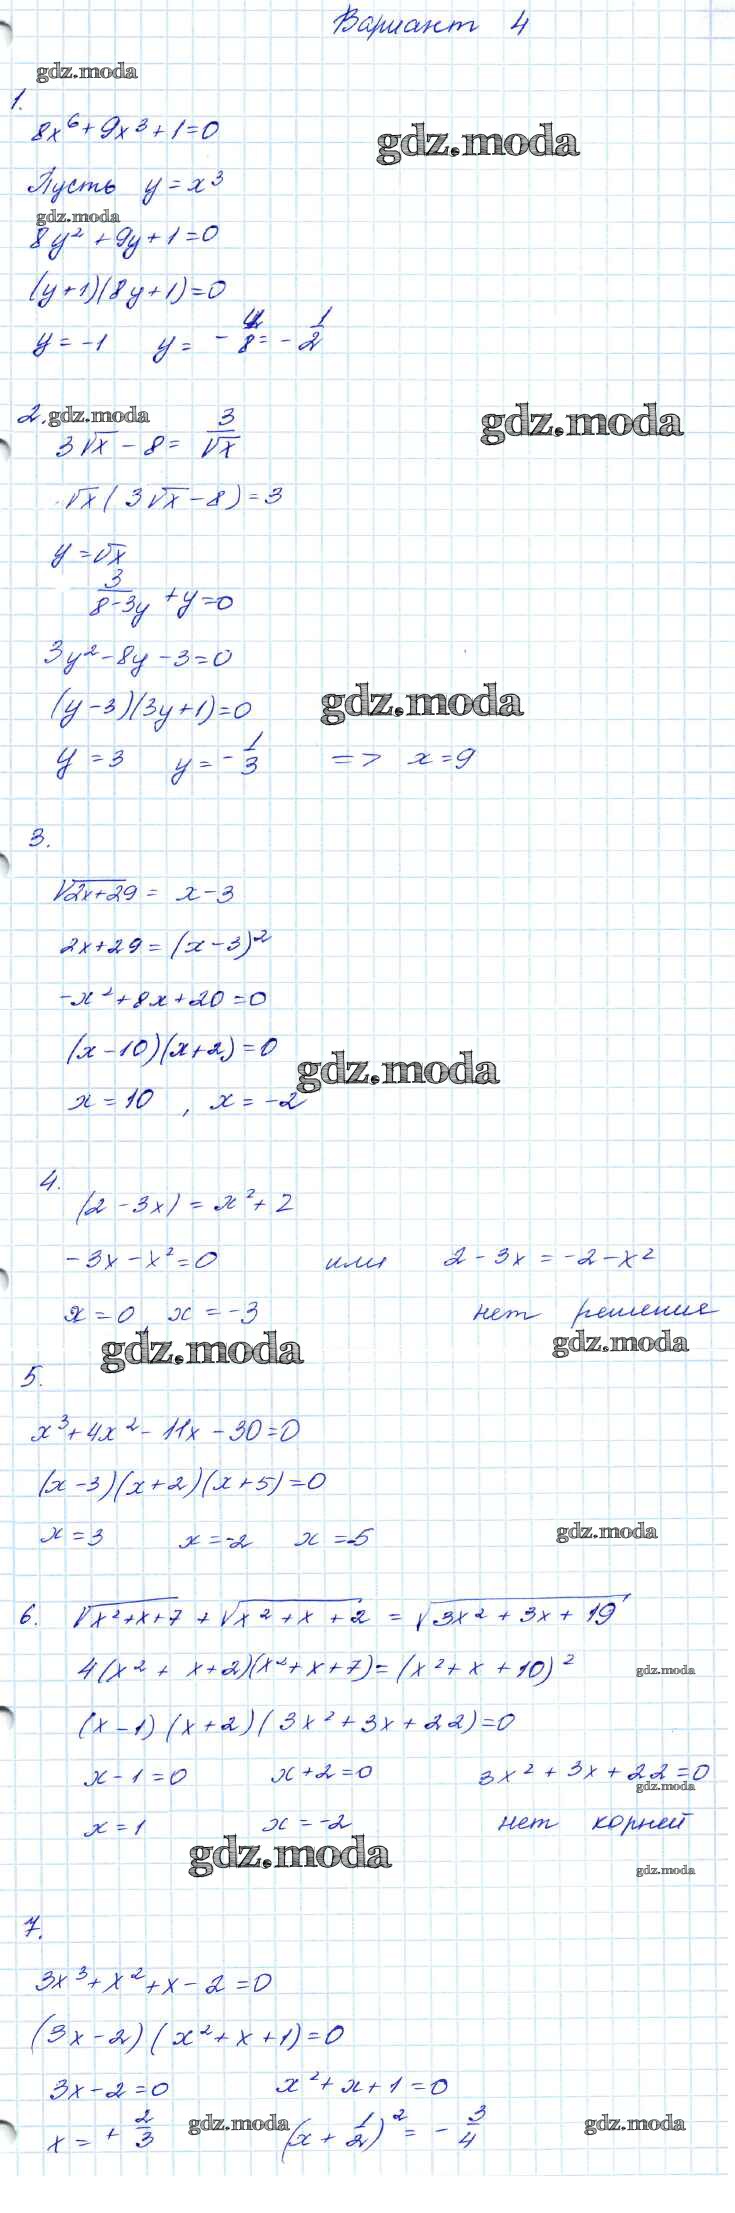 Вариант 4
gdz.moda
1.
8x⁶ + 9x³ + 1 = 0
gdz.moda
Пусть y = x³
gdz.moda
8y² + 9y + 1 = 0
(y+1)(8y+1) = 0
y = -1 y = - 4/8 = - 1/2
2. gdz.moda
gdz.moda
3√x - 8 = 3/√x
√x(3√x - 8) = 3
y = √x
3/(8-3y) + y = 0
3y² - 8y - 3 = 0
(y-3)(3y+1) = 0
gdz.moda
y = 3 y = - 1/3 => x = 9
3.
√(2x+29) = x - 3
2x + 29 = (x-3)²
-x² + 8x + 20 = 0
(x-10)(x+2) = 0
gdz.moda
x = 10 , x = -2
4.
(2 - 3x) = x² + 2
-3x - x² = 0 или 2 - 3x = -2 - x²
x = 0, x = -3 нет решение
gdz.moda gdz.moda
5.
x³ + 4x² - 11x - 30 = 0
(x-3)(x+2)(x+5) = 0
x = 3 x = -2 x = -5 gdz.moda
6. √(x²+x+7) + √(x²+x+2) = √(3x²+3x+19)
4(x²+x+2)(x²+x+7) = (x²+x+10)² gdz.moda
(x-1)(x+2)(3x²+3x+22) = 0
x - 1 = 0 x + 2 = 0 3x² + 3x + 22 = 0
gdz.moda
x = 1 x = -2 нет корней
gdz.moda gdz.moda
7.
3x³ + x² + x - 2 = 0
(3x-2)(x²+x+1) = 0
3x - 2 = 0 x² + x + 1 = 0
x = + 2/3 gdz.moda (x + 1/2)² = - 3/4 gdz.moda